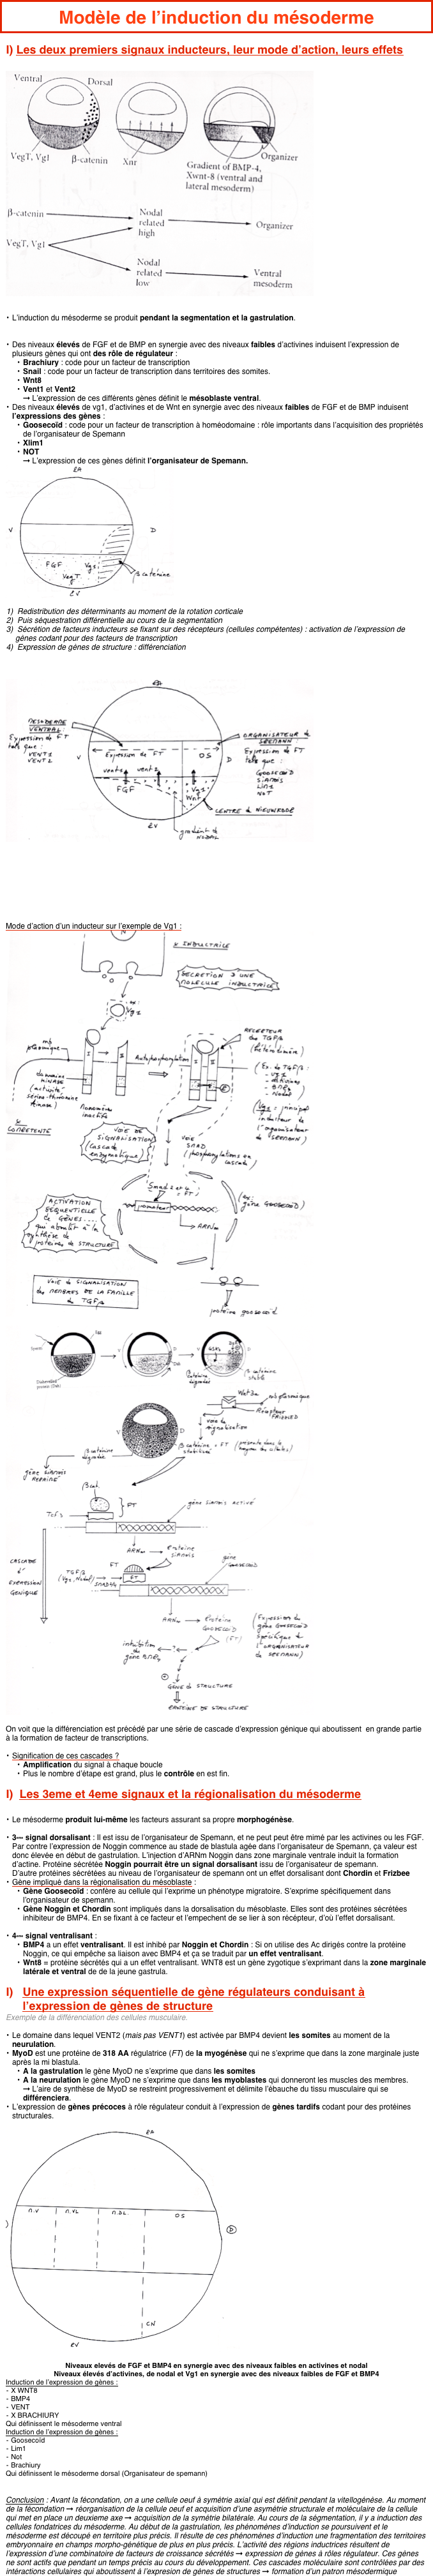 Modèle de l'induction du mésoderme
I) Les deux premiers signaux inducteurs, leur mode d'action, leurs effets
Ventral
Dorsal
VegT, Vg1
β-catenin
Xnr
Organizer
Gradient of BMP-4,
Xwnt-8 (ventral and
lateral mesoderm)
β-catenin
Nodal
related
high
Organizer
VegT, Vg1
Nodal
related
low
Ventral
mesoderm
• L'induction du mésoderme se produit pendant la segmentation et la gastrulation.
• Des niveaux élevés de FGF et de BMP en synergie avec des niveaux faibles d'activines induisent l'expression de
plusieurs gènes qui ont des rôle de régulateur :
• Brachiury : code pour un facteur de transcription
• Snail : code pour un facteur de transcription dans territoires des somites.
• Wnt8
• Vent1 et Vent2
→ L'expression de ces différents gènes définit le mésoblaste ventral.
• Des niveaux élevés de vg1, d'activines et de Wnt en synergie avec des niveaux faibles de FGF et de BMP induisent
l'expressions des gènes :
• Goosecoïd : code pour un facteur de transcription à homéodomaine : rôle importants dans l'acquisition des propriétés
de l'organisateur de Spemann
• Xlim1
• NOT
→ L'expression de ces gènes définit l'organisateur de Spemann.
PA
V
D
FGF
Vg1
VegT
β caténine
PV
1) Redistribution des déterminants au moment de la rotation corticale
2) Puis séquestration différentielle au cours de la segmentation
3) Sécrétion de facteurs inducteurs se fixant sur des récepteurs (cellules compétentes) : activation de l'expression de
gènes codant pour des facteurs de transcription
4) Expression de gènes de structure : différenciation
PA
MESODERME
VENTRAL :
Expression de FT
tels que :
VENT 1
VENT 2
ORGANISATEUR de
SPEMANN
Expression de FT
tels que :
GOOSECOÏD
SIAMOIS
LIM1
NOT
Expression de FT
OS
V
D
vent1
vent 2
FGF
Vg1
Wnt
CENTRE de NIEUWKOOP
PV
gradient de
NODAL
Mode d'action d'un inducteur sur l'exemple de Vg1 :
INDUCTRICE
SECRETION D'UNE
MOLECULE INDUCTRICE
ex:
Vg1
mb
plasmique
Autophosphorylation
RECEPTEUR
des TGFβ
(hétérodimère)
domaine
KINASE
(activité
sérine-thréonine
kinase)
monomère
inactif
(Ex. de TGFβ :
- Vg1
- Activines
- BMP4
- Nodal)
(Vg1 : principal
inducteur de
l'organisateur
de SPEMANN)
COMPETENTE
VOIE DE
SIGNALISATION
(cascade
enzymatique)
VOIE
SMAD
(phosphorylations en
cascade)
ACTIVATION
SEQUENTIELLE
de GENES....
qui aboutit à la
synthèse de
proteines de STRUCTURE
Smad 2 et 4
= FT
promoteur
(ex:
gène GOOSECOÏD)
ARNm
VOIE de SIGNALISATION
des MEMBRES DE LA FAMILLE
du TGFβ
protéine goosecoïd
Sperm
Egg
Dishevelled
protein (Dsh)
V
D
Dsh
GSK3
β caténine
dégradée
β caténine
stable
mb plasmique
Récepteur
FRIZZLED
voie de
signalisation
V
D
β caténine
dégradée
β caténine = FT (présente dans le
stabilisée
gène SIAMOIS
REPRIME
βcat
FT
Tcf3
gène SIAMOIS ACTIVÉ
ARNm
Protéine
SIAMOIS
CASCADE
d'
EXPRESSION
GENIQUE
TGFβ
(Vg1, Nodal)
FT
SMAD 2/4
FT
gène
GOOSECOÏD
ARNm
Protéine
GOOSECOÏD
(FT)
(Expression du
gène GOOSECOÏD
spécifique de
l'ORGANISATEUR
de SPEMANN)
inhibition du
gène BMP4
?
GENE de STRUCTURE
PROTEINE DE STRUCTURE
On voit que la différenciation est précédé par une série de cascade d'expression génique qui aboutissent en grande partie
à la formation de facteur de transcriptions.
• Signification de ces cascades ?
• Amplification du signal à chaque boucle
• Plus le nombre d'étape est grand, plus le contrôle en est fin.
I) Les 3eme et 4eme signaux et la régionalisation du mésoderme
• Le mésoderme produit lui-même les facteurs assurant sa propre morphogénèse.
• 3ème signal dorsalisant : Il est issu de l'organisateur de Spemann, et ne peut peut être mimé par les activines ou les FGF.
Par contre l'expression de Noggin commence au stade de blastula agée dans l'organisateur de Spemann, ça valeur est
donc élevée en début de gastrulation. L'injection d'ARNm Noggin dans zone marginale ventrale induit la formation
d'actine. Protéine sécrétée Noggin pourrait être un signal dorsalisant issu de l'organisateur de spemann.
D'autre protéines sécrétées au niveau de l'organisateur de spemann ont un effet dorsalisant dont Chordin et Frizbee
• Gène impliqué dans la régionalisation du mésoblaste :
• Gène Goosecoïd : confère au cellule qui l'exprime un phénotype migratoire. S'exprime spécifiquement dans
l'organisateur de spemann.
• Gène Noggin et Chordin sont impliqués dans la dorsalisation du mésoblaste. Elles sont des protéines sécrétées
inhibiteur de BMP4. En se fixant à ce facteur et l'empechent de se lier à son récépteur, d'où l'effet dorsalisant.
• 4ème signal ventralisant :
• BMP4 a un effet ventralisant. Il est inhibé par Noggin et Chordin : Si on utilise des Ac dirigés contre la protéine
Noggin, ce qui empêche sa liaison avec BMP4 et ça se traduit par un effet ventralisant.
• Wnt8 = protéine sécrétés qui a un effet ventralisant. WNT8 est un gène zygotique s'exprimant dans la zone marginale
latérale et ventral de de la jeune gastrula.
I) Une expression séquentielle de gène régulateurs conduisant à
l'expression de gènes de structure
Exemple de la différenciation des cellules musculaire.
• Le domaine dans lequel VENT2 (mais pas VENT1) est activée par BMP4 devient les somites au moment de la
neurulation.
• MyoD est une protéine de 318 AA régulatrice (FT) de la myogénèse qui ne s'exprime que dans la zone marginale juste
après la mi blastula.
• A la gastrulation le gène MyoD ne s'exprime que dans les somites
• A la neurulation le gène MyoD ne s'exprime que dans les myoblastes qui donneront les muscles des membres.
→ L'aire de synthèse de MyoD se restreint progressivement et délimite l'ébauche du tissu musculaire qui se
différenciera.
• L'expression de gènes précoces à rôle régulateur conduit à l'expression de gènes tardifs codant pour des protéines
structurales.
PA
m.V
m.VL
m.DL
OS
D
CN
PV
Niveaux elevés de FGF et BMP4 en synergie avec des niveaux faibles en activines et nodal
Niveaux élevés d'activines, de nodal et Vg1 en synergie avec des niveaux faibles de FGF et BMP4
Induction de l'expression de gènes :
- X WNT8
- BMP4
- VENT
- X BRACHIURY
Qui définissent le mésoderme ventral
Induction de l'expression de gènes :
- Goosecoïd
- Lim1
- Not
- Brachiury
Qui définissent le mésoderme dorsal (Organisateur de spemann)
Conclusion : Avant la fécondation, on a une cellule oeuf à symétrie axial qui est définit pendant la vitellogénèse. Au moment
de la fécondation → réorganisation de la cellule oeuf et acquisition d'une asymétrie structurale et moléculaire de la cellule
qui met en place un deuxieme axe → acquisition de la symétrie bilatérale. Au cours de la ségmentation, il y a induction des
cellules fondatrices du mésoderme. Au début de la gastrulation, les phénomènes d'induction se poursuivent et le
mésoderme est découpé en territoire plus précis. Il résulte de ces phénomènes d'induction une fragmentation des territoires
embryonnaire en champs morpho-génétique de plus en plus précis. L'activité des régions inductrices résultent de
l'expression d'une combinatoire de facteurs de croissance sécrétés → expression de gènes à rôles régulateur. Ces gènes
ne sont actifs que pendant un temps précis au cours du développement. Ces cascades moléculaire sont contrôlées par des
intéractions cellulaires qui aboutissent à l'expression de gènes de structures → formation d'un patron mésodermique